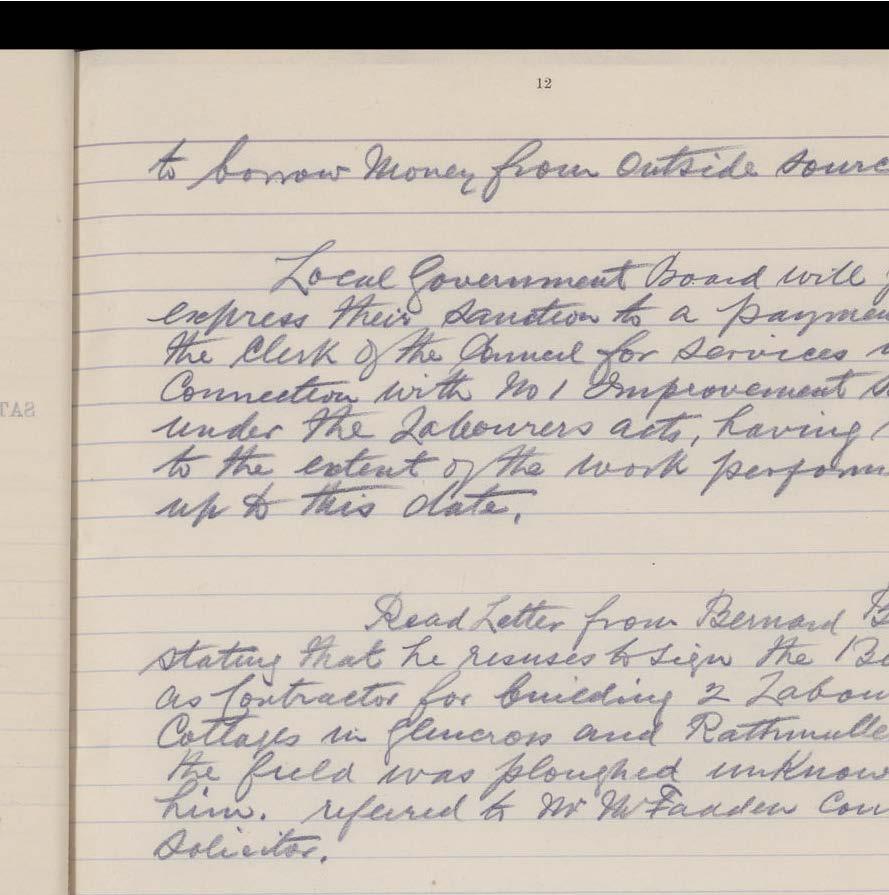 12
to borrow Money from Outside Sourc
Local Government Board will
express their Sanction to a paymen
the Clerk of the Council for Services
Connection with No 1 Improvement S
under the Labourers acts, having
to the extent of the work perform
up to this date.
Read Letter from Bernard B
stating that he resuses to sign the Bo
as Contractor for building 2 Labou
Cottages in Glencross and Rathmulle
the field was ploughed unknow
him. referred to Mr McFadden Cou
Solicitor.
SAT